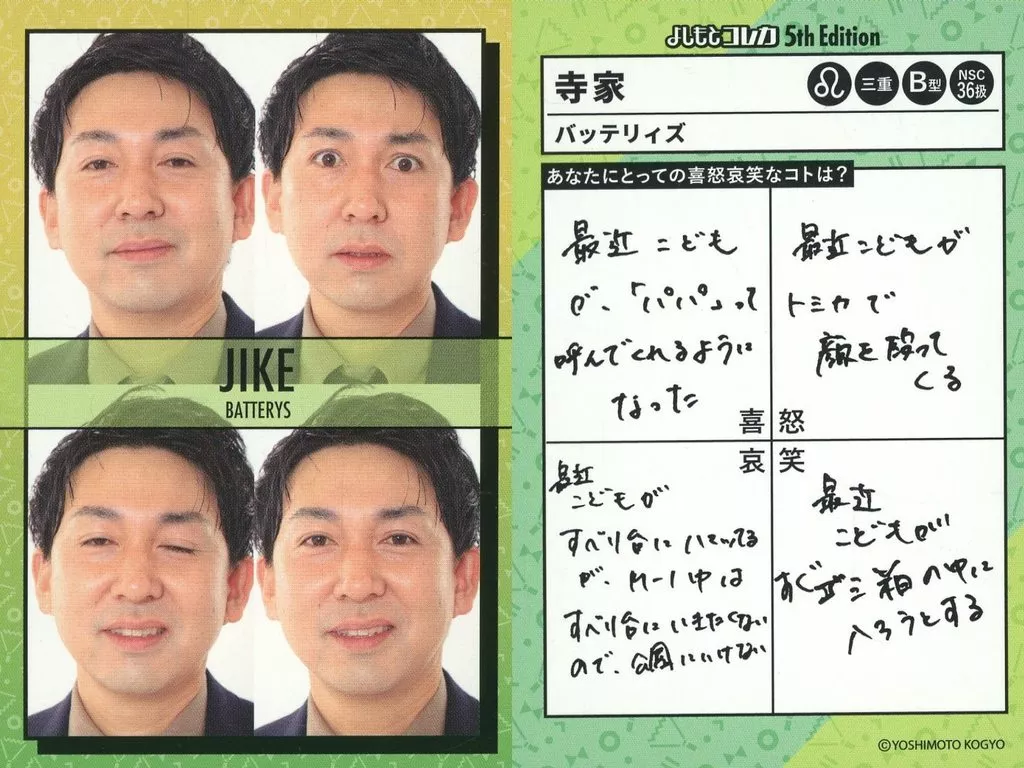 JIKE
BATTERYS
よしもとコレカ 5th Edition
寺家
♌ 三重 B型 NSC 36扱
バッテリィズ
あなたにとっての喜怒哀笑なコトは？
最近 こども
が、「パパ」って
呼んでくれるように
なった
喜
最近こどもが
トミカで
顔を殴って
くる
怒
哀
最近
こどもが
すべり台にハマってる
が、M-1中は
すべり台にいきたくない
ので、公園にいけない
笑
最近
こどもが
すぐゴミ箱の中に
入ろうとする
©YOSHIMOTO KOGYO